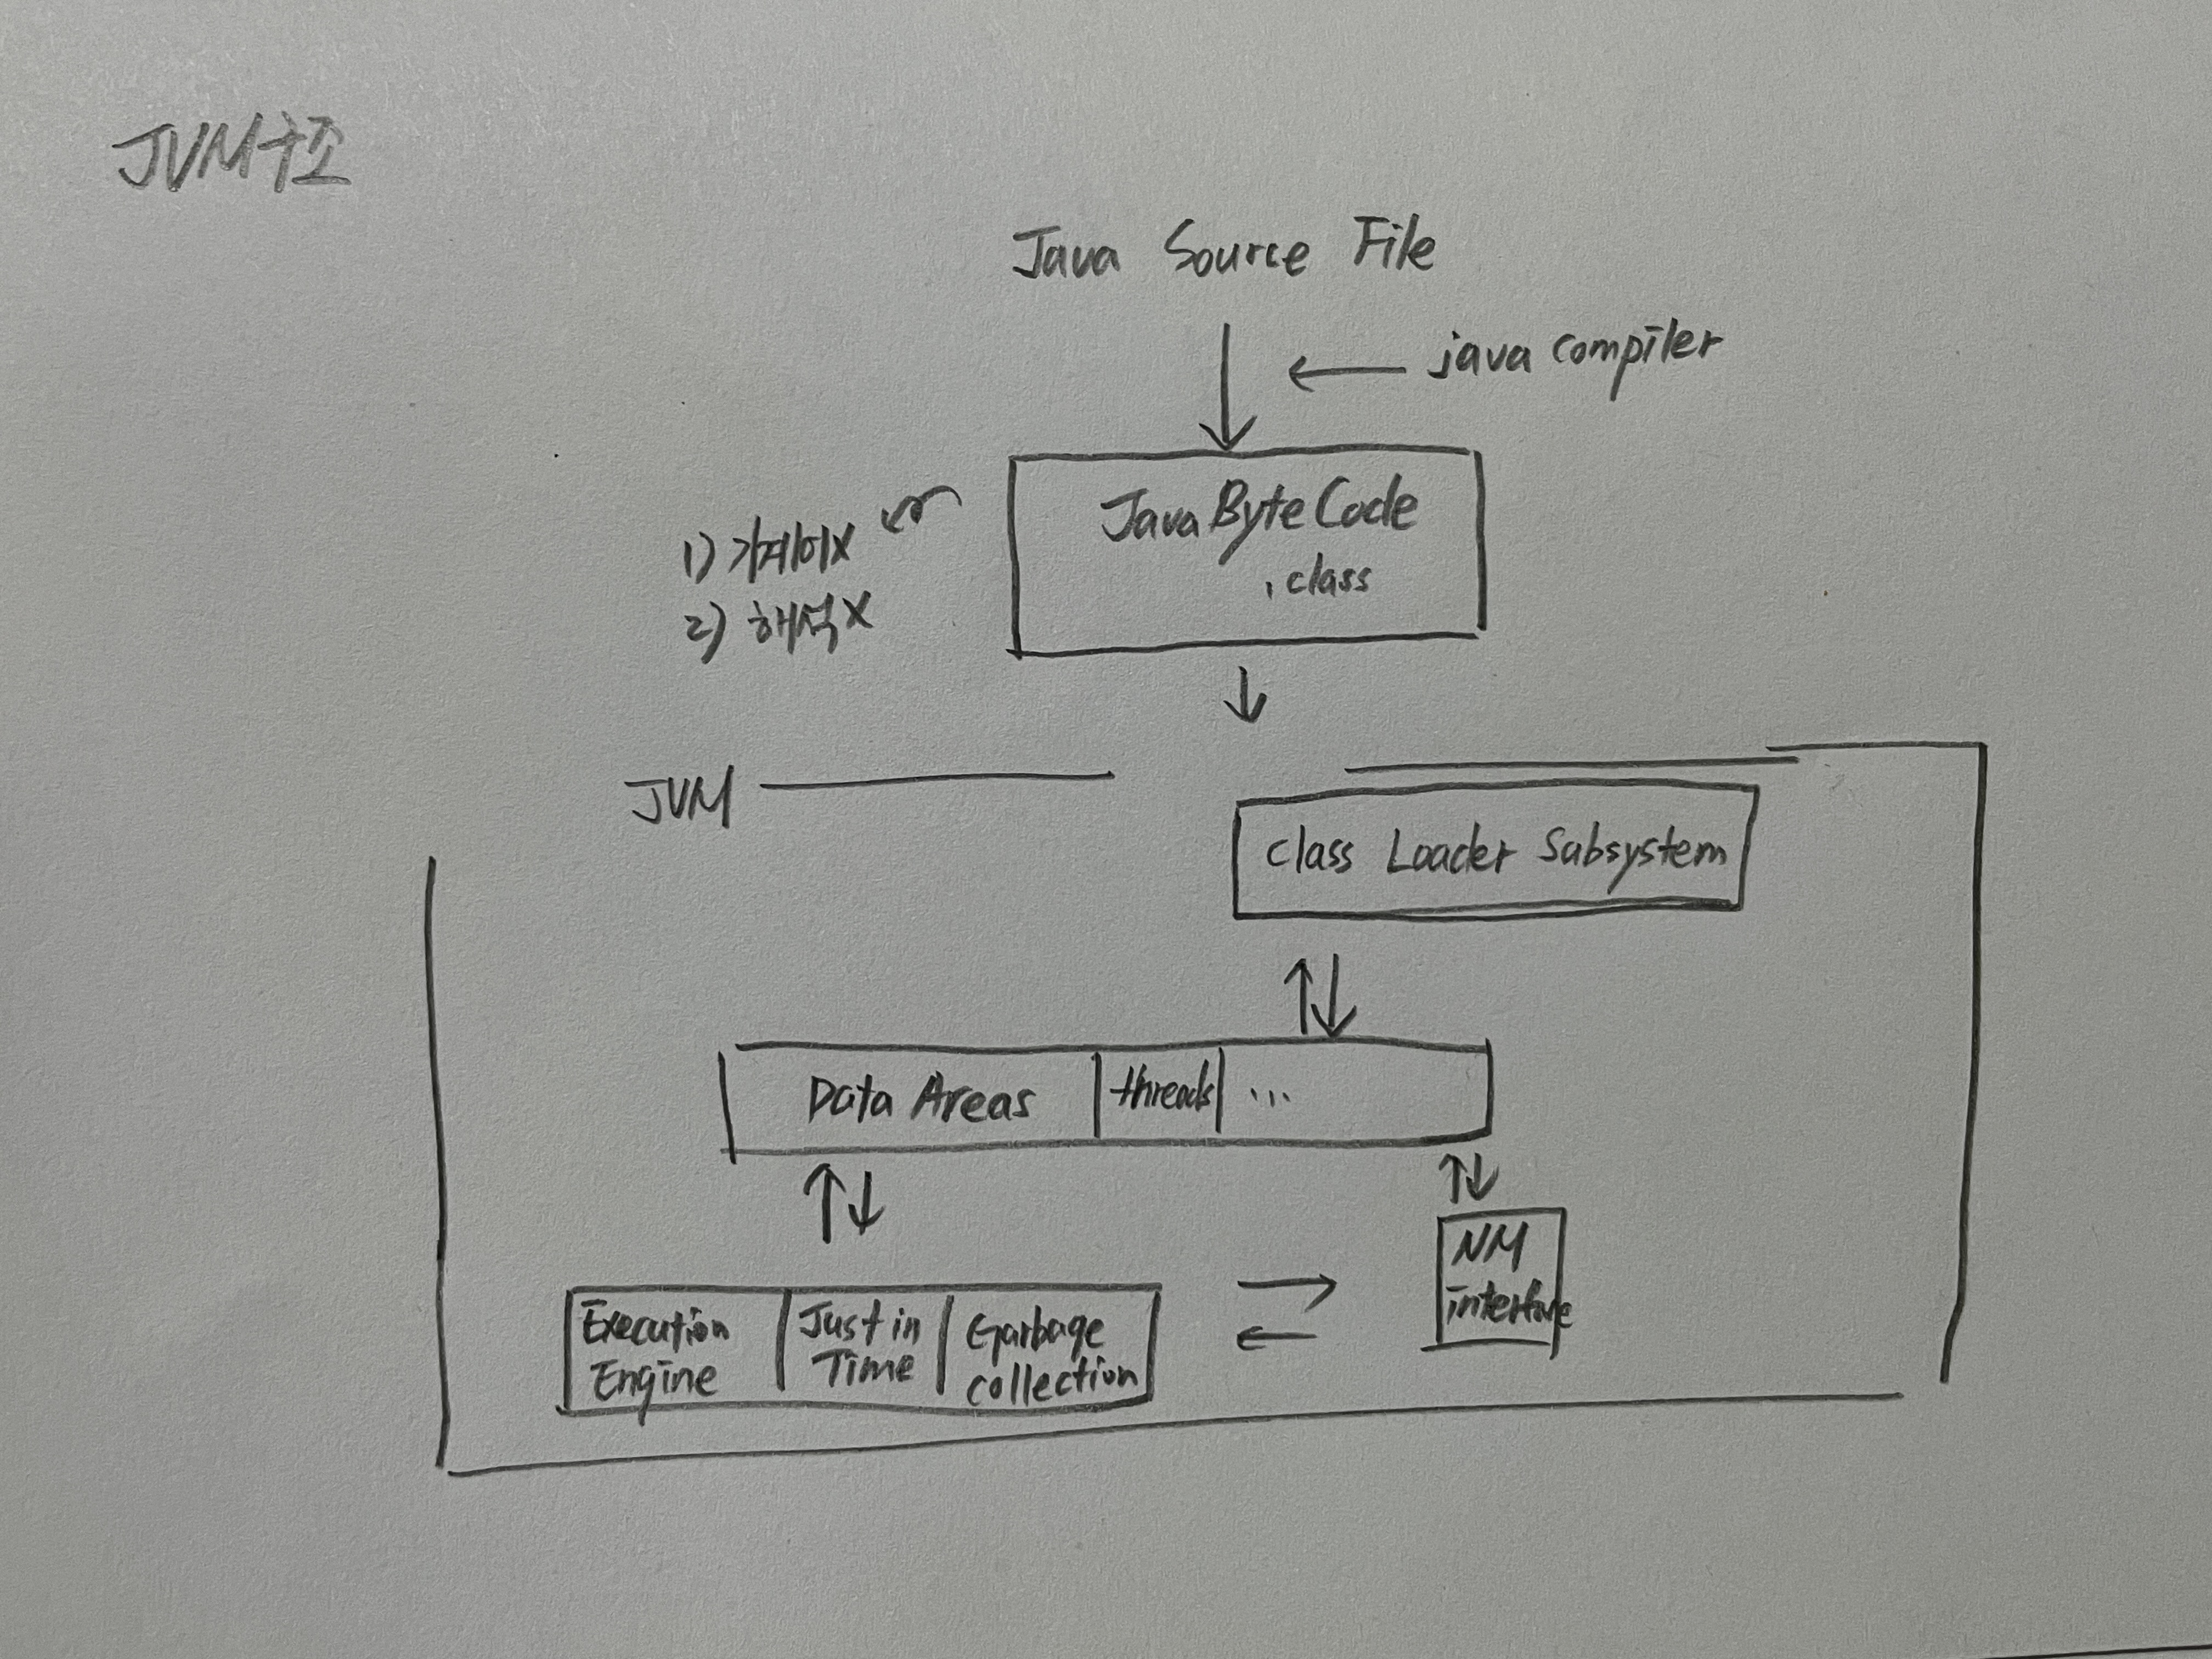 JVM구조
Java Source File
java compiler
Java Byte Code
.class
1) 기계어X
2) 해석X
JVM
class Loader Subsystem
Data Areas
threads
...
Execution
Engine
Just in
Time
Garbage
collection
NM
interface